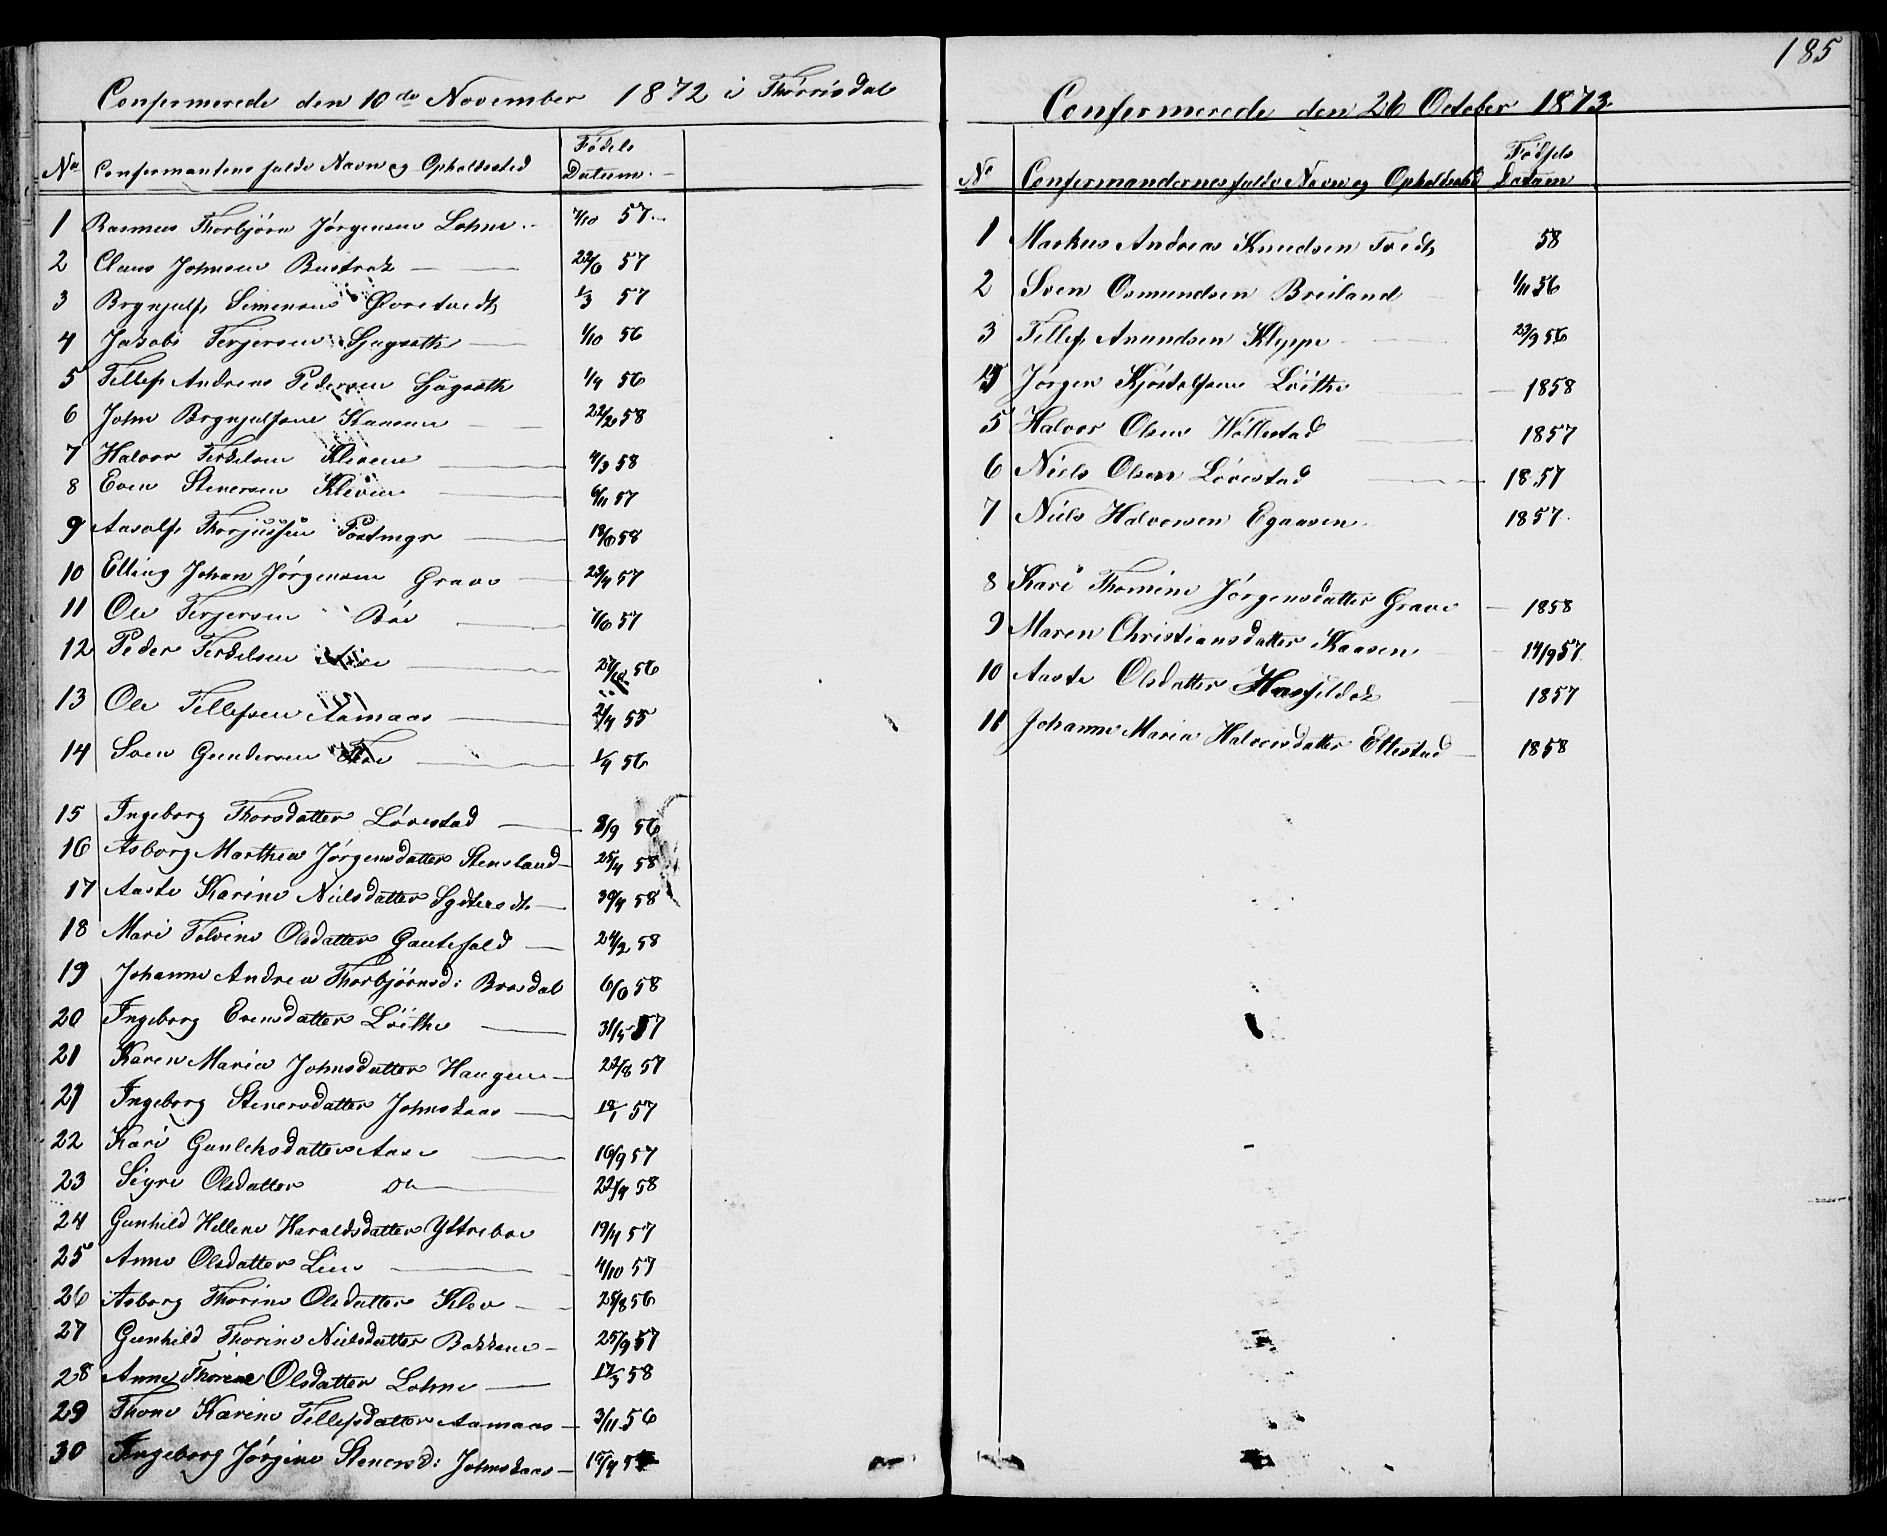 185
Confermerede den 10de November 1872 i Thørrisdal
No Confermantens fulde Navn og Opholdssted Fødels Datum.
1 Rasmus Thorbjørn Jørgensen Lohne 57
2 Claus Johnsen Busterak 22/6 57
3 Brynjulf Simensen Øvretvedt 1/3 57
4 Jakob Terjersen 1/10 56
5 Tellef Andreas Pedersen 1/4 56
6 John Brynjulfsen Kaasen 22/2 58
7 Halvor Terkelsen Kleven 4/3 58
8 Even Stenersen Kleven 6/11 57
9 Aasolf Thorjussen Postmyr 18/6 58
10 Elling Johan Jørgensen Grave 23/4 57
11 Ole Terjersen Bøe 7/6 57
12 Peder Terkelsen 56
13 Ole Tellefsen Aamaas 2/4 55
14 Sven Gundersen 1/4 56
15 Ingeborg Thorsdatter Løvestad 8/9 56
16 Asborg Marthea Jørgensdatter Stensland 25/4 58
17 Aaste Karine Nielsdatter 30/4 58
18 Mari Tolvine Olsdatter Gautefald 24/2 58
19 Johanne Andrea Thorbjørnsd: Brosdal 6/6 58
20 Ingeborg Evensdatter Løithe 31/5 57
21 Karen Maria Johnsdatter Haugen 22/8 57
21 Ingeborg Stenersdatter Johnskaas 18/1 57
22 Kari Gunleksdatter Aase 16/9 57
23 Sigri Olsdatter Do 22/4 58
24 Gunhild Hellene Haraldsdatter Yttreboe 19/4 57
25 Anne Olsdatter Lien 4/10 57
26 Asborg Thorine Olsdatter Klev 25/8 56
27 Gunhild Thorine Nielsdatter Bakken 25/9 57
28 Anne Thorine Olsdatter Lohne 17/3 58
29 Thone Karine Tellefsdatter Aamaas 3/11 56
30 Ingeborg Jørgine Stenersd: Johnskaas
Confermerede den 26 October 1873
No Confermandernes fulde Navn og Opholdssted Fødsels Datum
1 Markus Andreas Knudsen Tvedt 58
2 Sven Osmundsen Breiland 1/11 56
3 Tellef Anundsen Kleppe 23/9 56
4 Jørgen Kjøstolfsen Løithe 1858
5 Halvor Olsen Wøllestad 1857
6 Niels Olsen Løvestad 1857
7 Niels Halvorsen Egaasen 1857
8 Kari Thomine Jørgensdatter Grave 1858
9 Maren Christiansdatter Kaasen 14/9 57
10 Aaste Olsdatter 1857
11 Johanne Maria Halvorsdatter Ellestad 1858